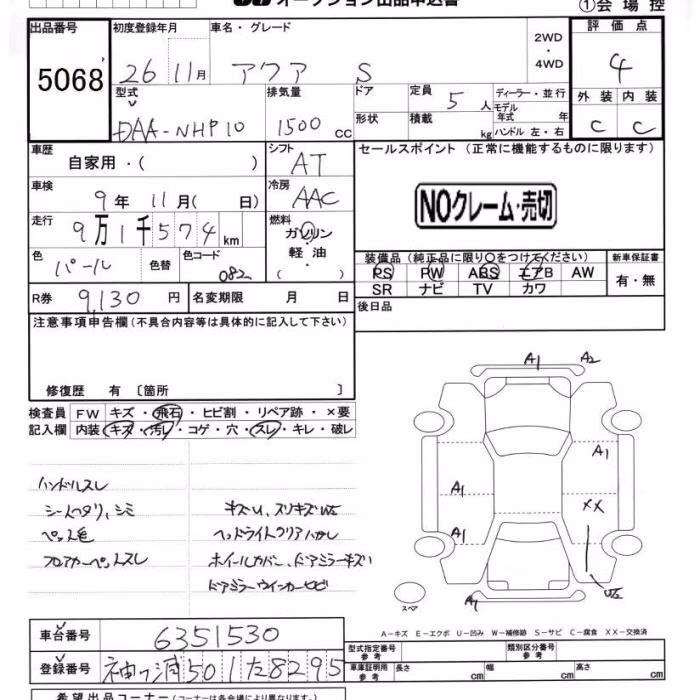 オークション出品申込書
①会場控
出品番号 初度登録年月 車名・グレード 2WD・4WD 評価点
5068 26 11月 アクア S 4
型式 排気量 ドア 定員 5人 ディーラー・並行
モデル年式 年
外装 内装
DAA-NHP10 1500cc 形状 積載 kg ハンドル 左・右 C C
車歴 自家用・( ) シフト AT セールスポイント (正常に機能するものに限ります)
車検 9年 11月( 日) 冷房 AAC
NOクレーム・売切
走行 9万1千574km 燃料 ガソリン・軽油 ( )
色 パール 色替 色コード 082
装備品 (純正品に限り○をつけてください) 新車保証書
PS PW ABS エアB AW 有・無
SR ナビ TV カワ
R券 9,130円 名変期限 月 日 後日品
注意事項申告欄 (不具合内容等は具体的に記入して下さい)
修復歴 有 〔箇所 〕
検査員記入欄 FW キズ・飛石・ヒビ割・リペア跡・×要
内装 キズ・汚レ・コゲ・穴・スレ・キレ・破レ
A1 A2
A1
A1 XX
A1
U2
A1
スペア
ハンドルスレ
シートヘタリ、シミ
ペット毛
フロアカーペットスレ
キズU、スリキズ
ヘッドライトクリアハガレ
ホイールカバー、ドアミラーキズ
ドアミラーウィンカーヒビ
A-キズ E-エクボ U-凹み W-補修跡 S-サビ C-腐食 XX-交換済
車台番号 6351530
登録番号 袖ヶ浦501た8295
型式指定番号 参考 類別区分番号 参考
車庫証明用 参考 長さ cm 幅 cm 高さ cm
希望出品コーナー (コーナーは各会場により異なります。)